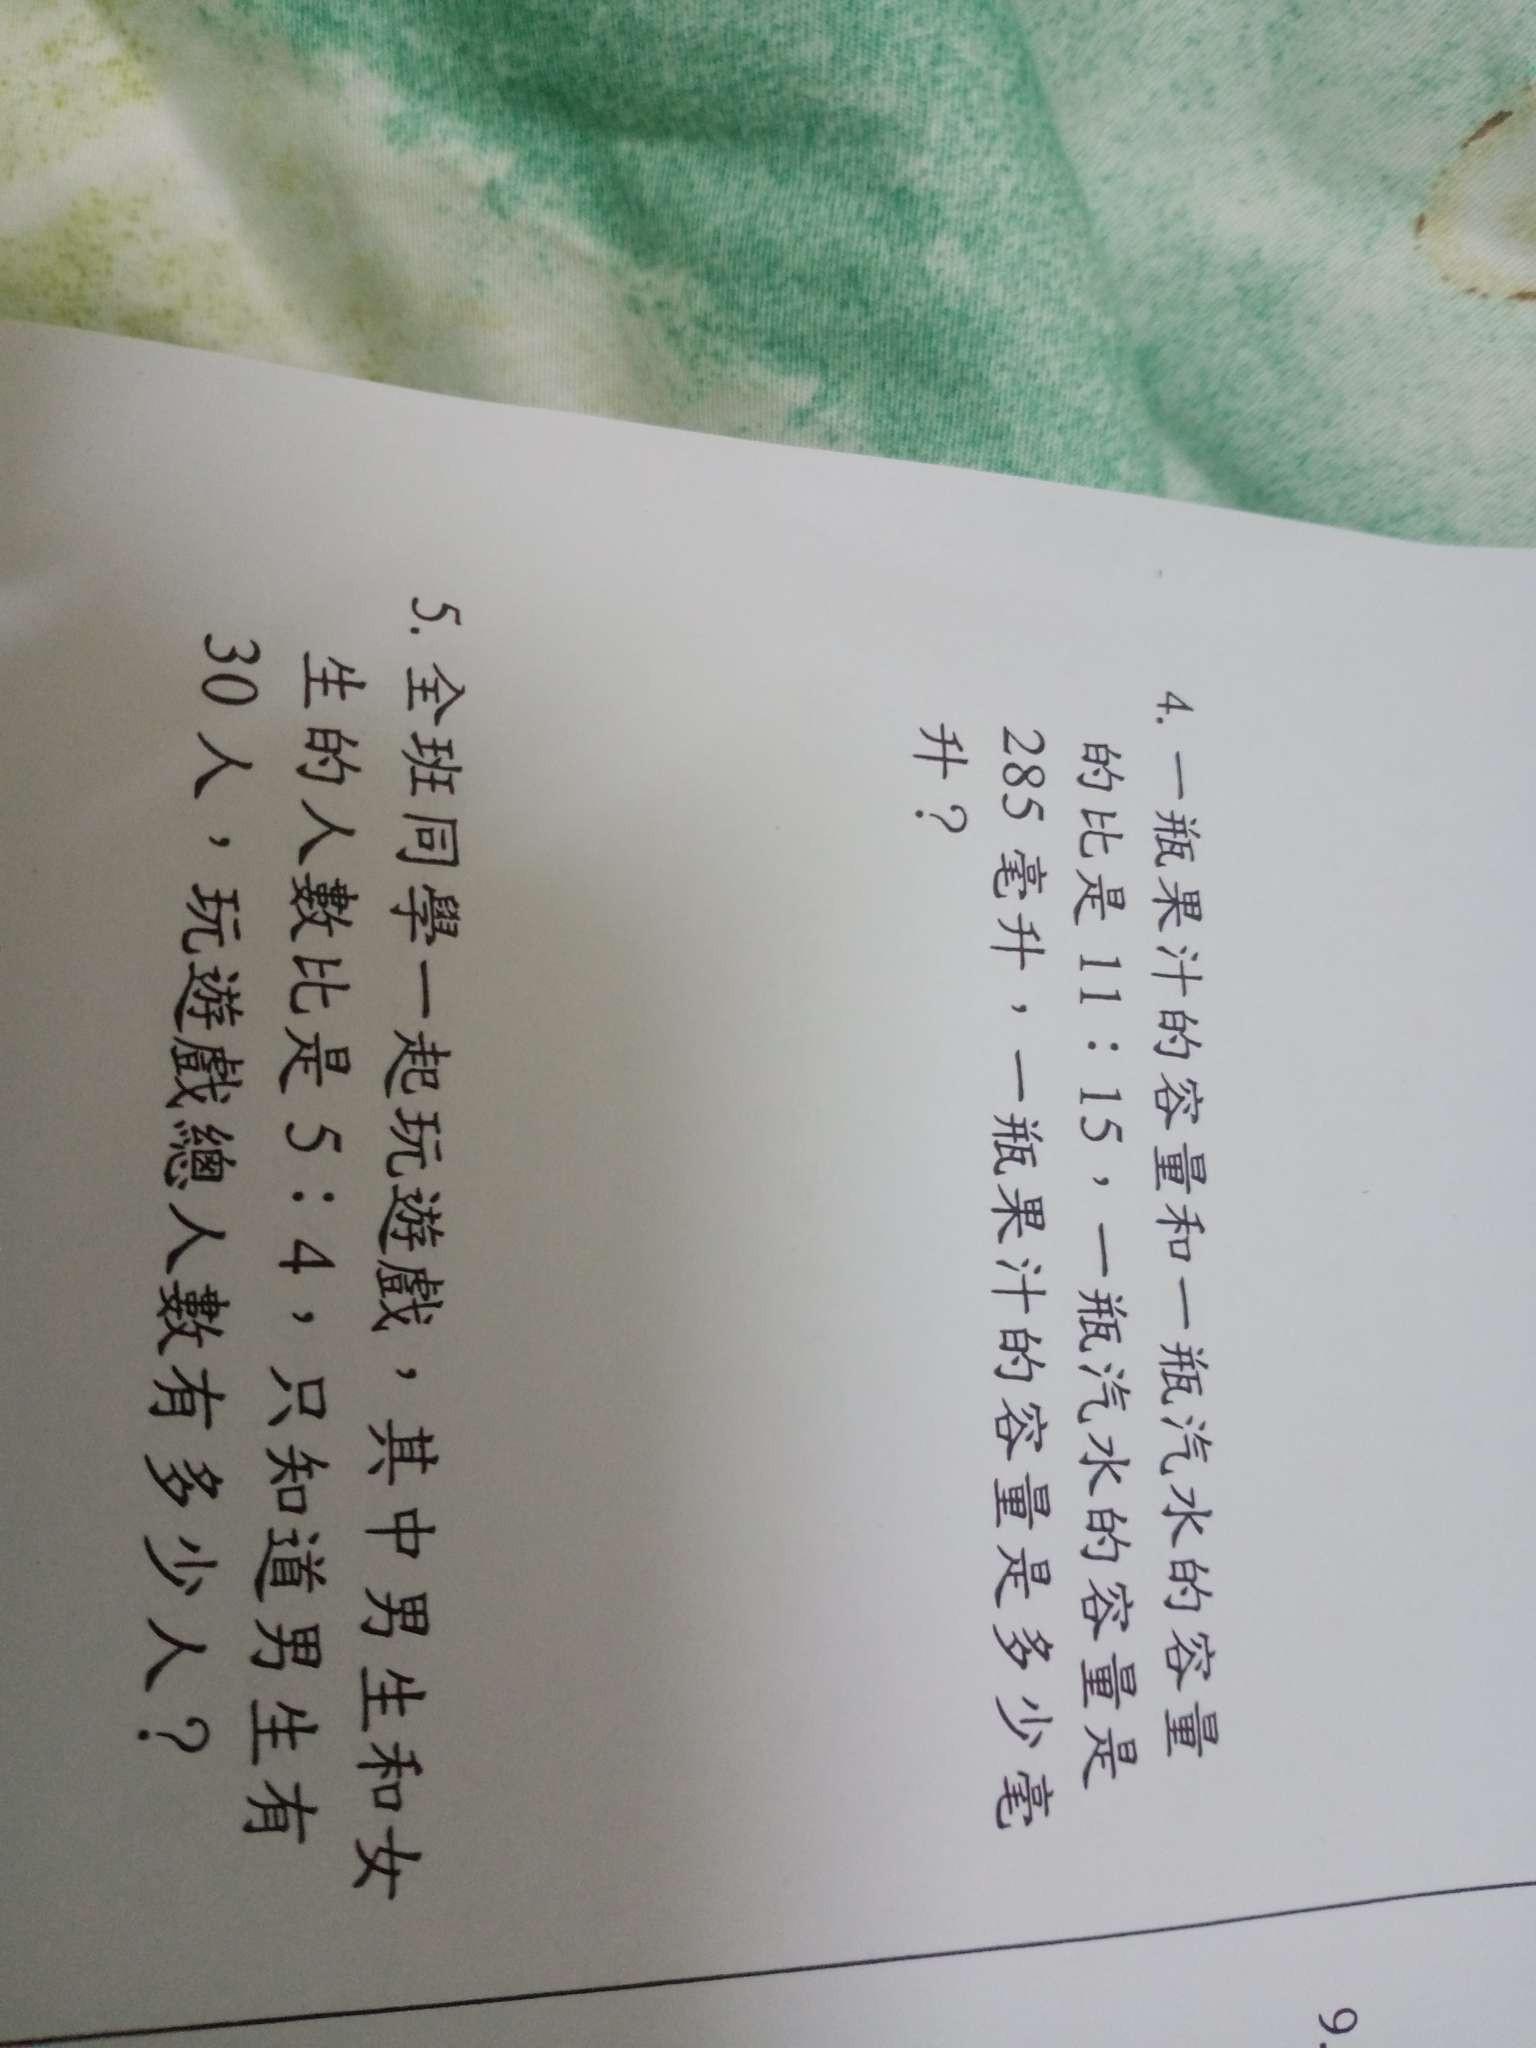 4. 一瓶果汁的容量和一瓶汽水的容量
的比是 11：15，一瓶汽水的容量是
285 毫升，一瓶果汁的容量是多少毫
升？
5. 全班同學一起玩遊戲，其中男生和女
生的人數比是 5：4，只知道男生有
30 人，玩遊戲總人數有多少人？
9.